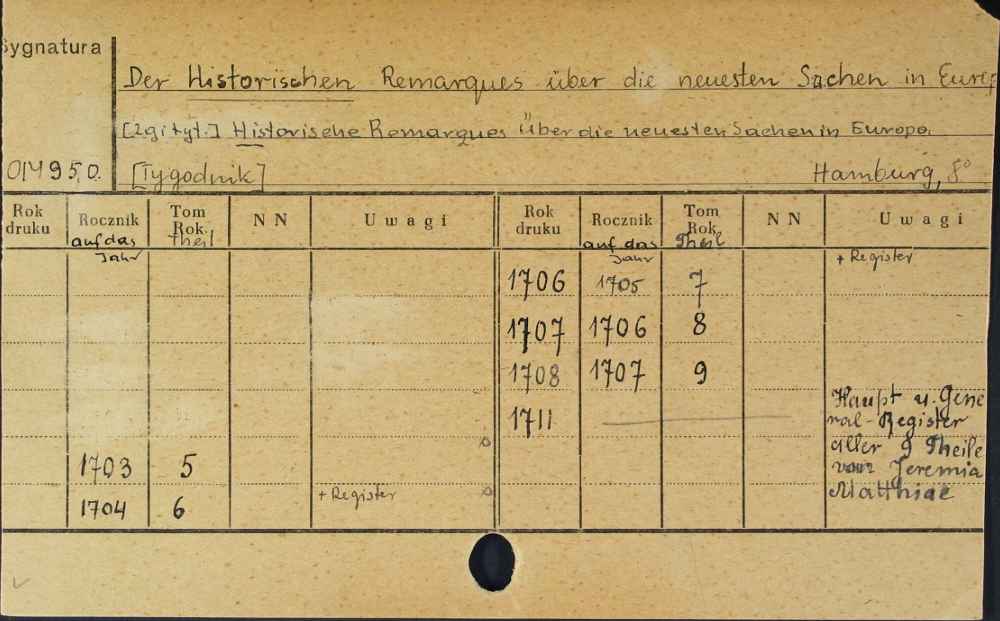 Sygnatura
Der Historischen Remarques über die neuesten Sachen in Europ
[2gi tyt.] Historische Remarques Über die neuesten Sachen in Europa.
014950. [Tygodnik] Hamburg, 8°
Rok druku Rocznik auf das Jahr Tom Rok. Theil NN Uwagi Rok druku Rocznik auf das Jahr Tom Rok. Theil NN Uwagi
1706 1705 7 + Register
1707 1706 8
1708 1707 9
1711 — Haupt u. Gene
ral-Register
aller 9 Theile
1703 5 von Jeremia
1704 6 + Register Matthiae